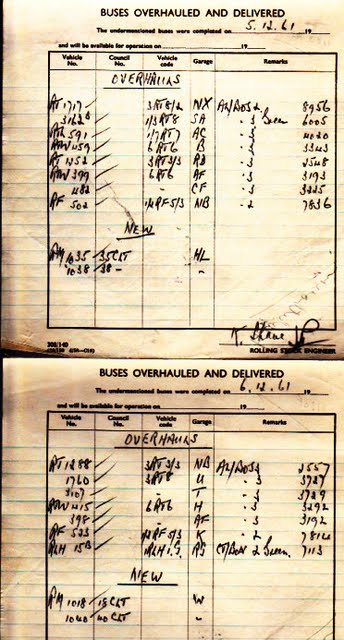 BUSES OVERHAULED AND DELIVERED
The undermentioned buses were completed on 5.12.61 19
and will be available for operation on 19
Vehicle No. Council No. Vehicle code Garage Remarks
OVERHAULS
RT 1717 3RT8/2 NX 8956
3162 1/3RT8 SA 3 Green 6005
591 AC 3 4020
RTW 459 6RT6 B 3 3343
RT 1252 3RT3/3 RD 3 2548
RTW 399 6RT6 AF 3 3193
482 " CF 3 3225
RF 502 RF5/3 NB 2 7836
NEW
RM 1035 35CLT HL
1038 38 - "
208/140
ROLLING STOCK ENGINEER
BUSES OVERHAULED AND DELIVERED
The undermentioned buses were completed on 6.12.61 19
and will be available for operation on 19
Vehicle No. Council No. Vehicle code Garage Remarks
OVERHAULS
RT 1288 3RT3/3 NB 2557
1760 3RT8 U 3 3727
3107 " T 3 3729
RTW 415 6RT6 H 3 3292
398 AF 3 3192
RF 523 RF5/3 K 2 7814
RLH 15 2 Green 7113
NEW
RM 1018 18CLT W
1040 40 CLT "